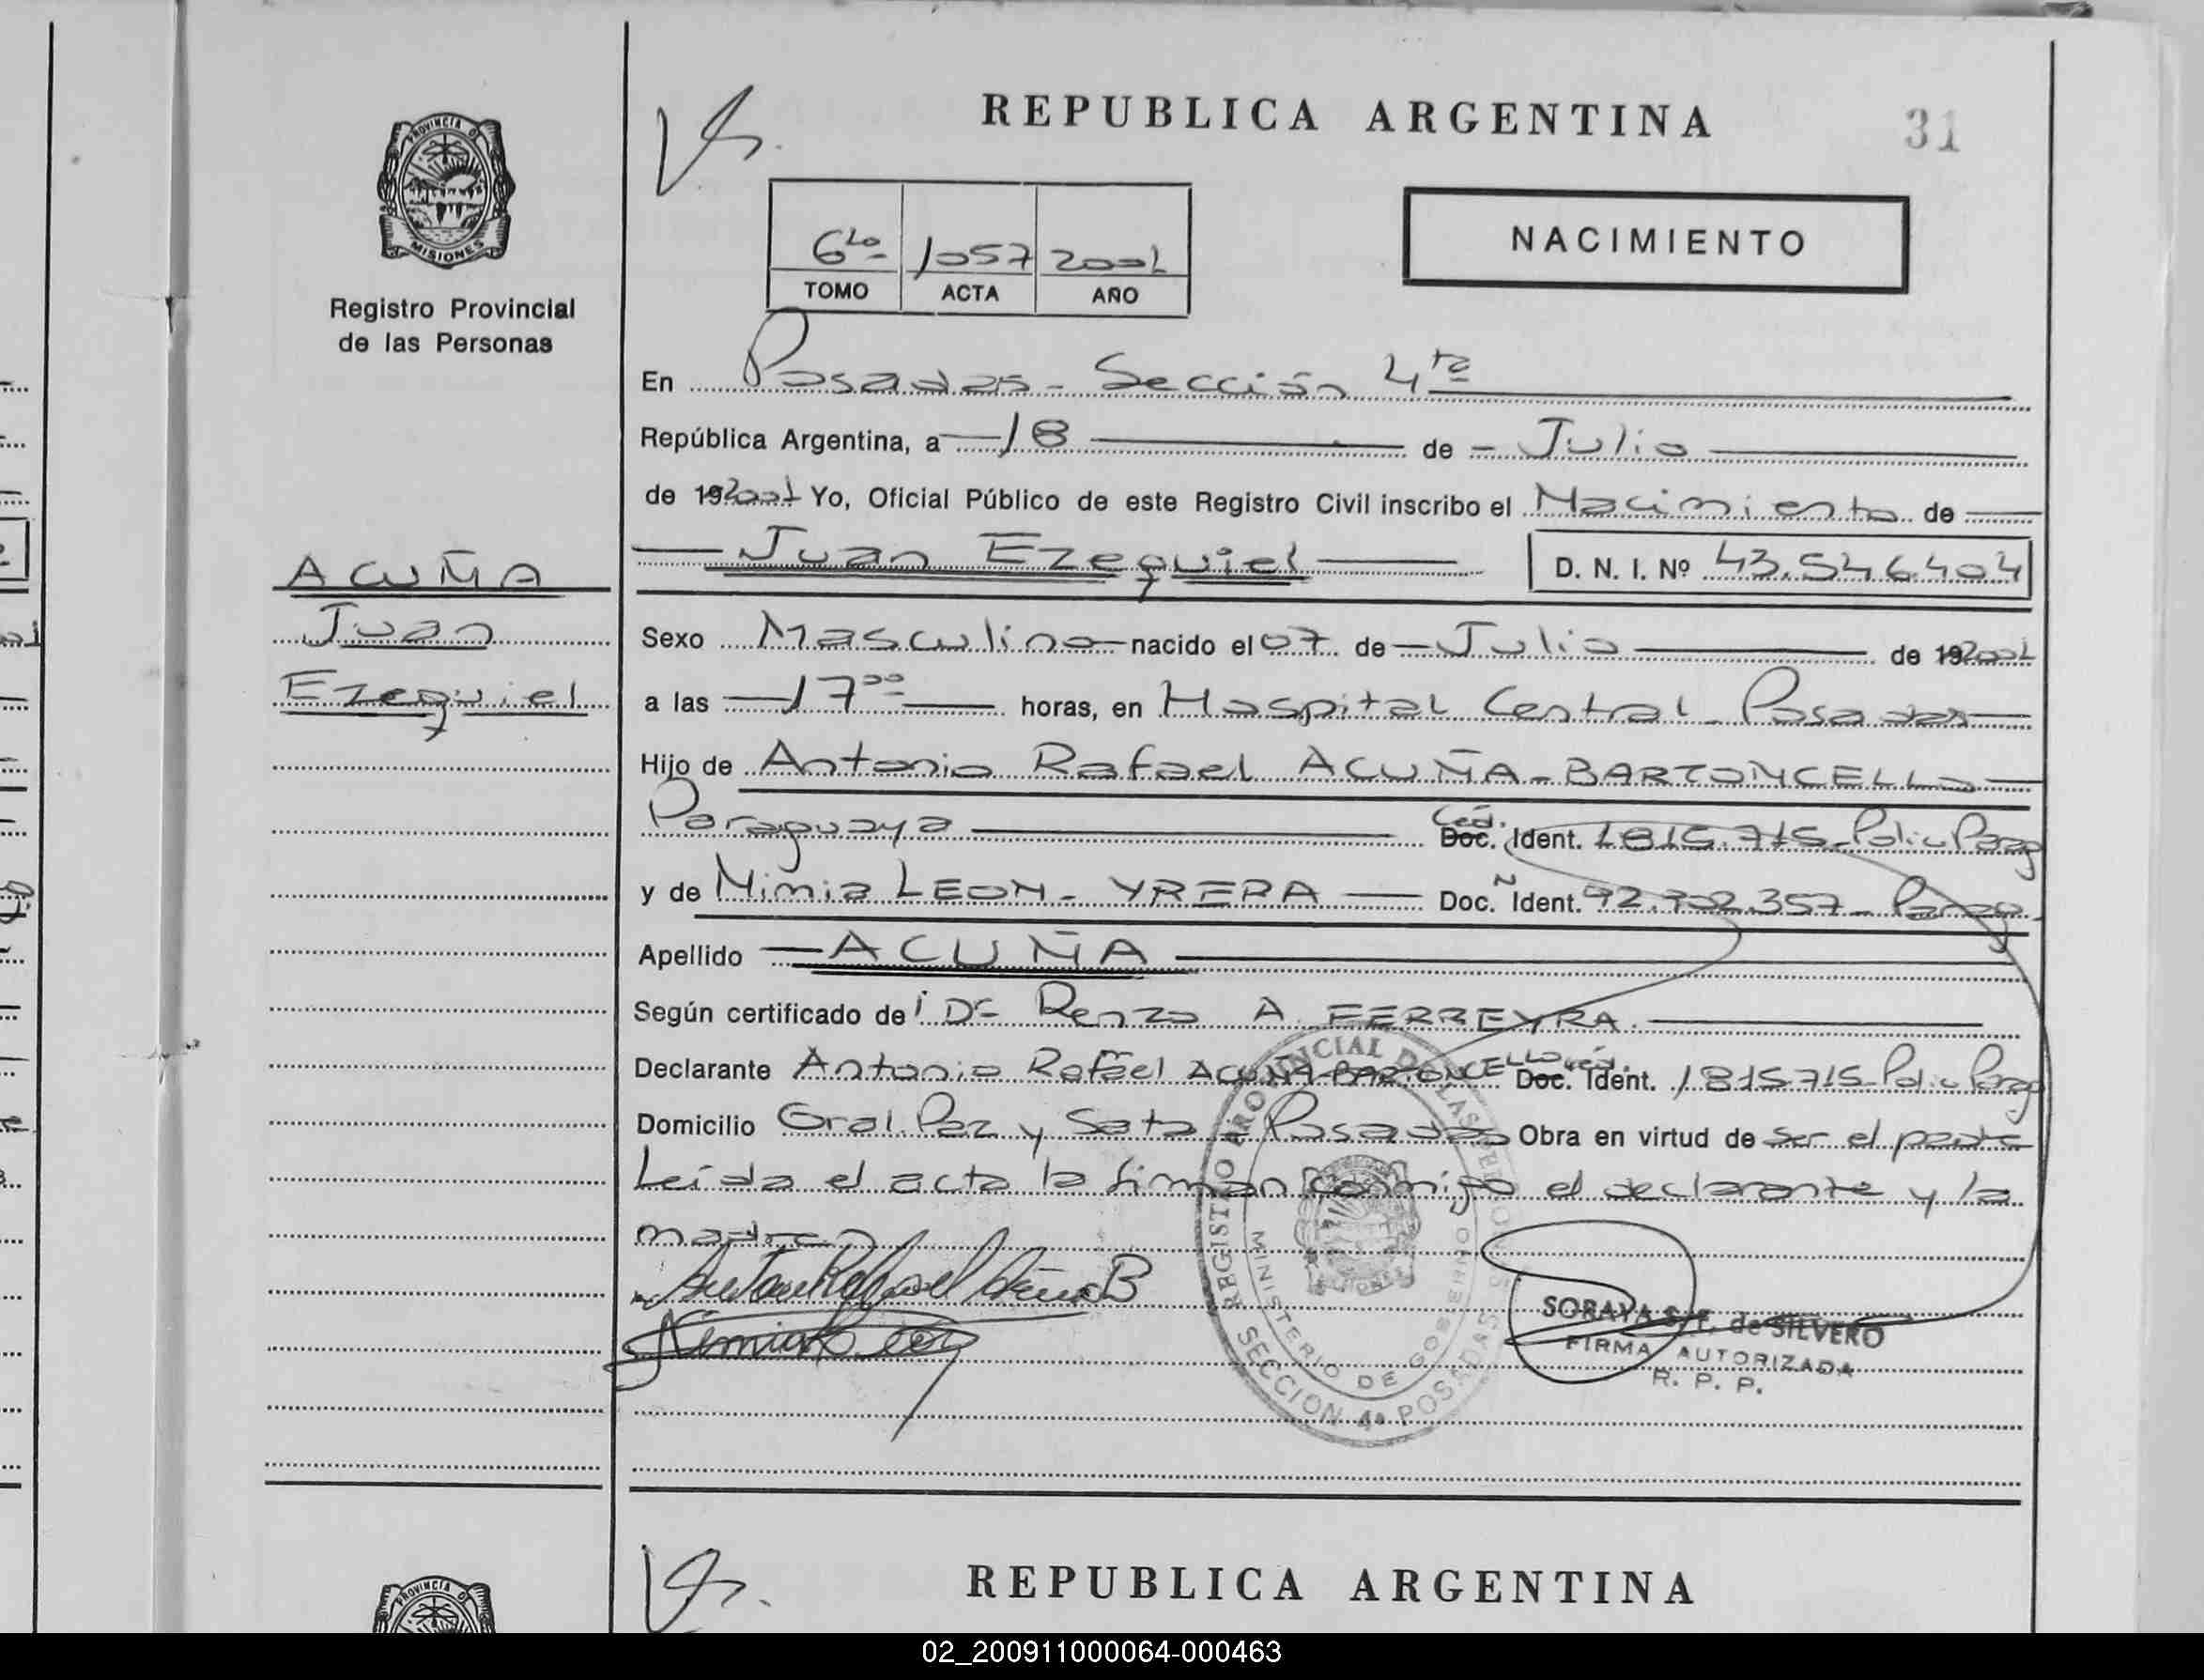 REPUBLICA ARGENTINA
31
PROVINCIA DE MISIONES
Registro Provincial
de las Personas
NACIMIENTO
6to 1057 2001
TOMO ACTA AÑO
En Posadas - Sección 4ta
República Argentina, a 18 de - Julio
de 192001 Yo, Oficial Público de este Registro Civil inscribo el Nacimiento de
Juan Ezequiel D. N. I. Nº 43.546.404
ACUÑA
Juan
Ezequiel
Sexo Masculino nacido el 07 de Julio de 192001
a las 17 00 horas, en Hospital Central - Posadas
Hijo de Antonio Rafael ACUÑA - BARTONCELLO
Paraguaya Céd. Doc. Ident. 1815.715 - Polic Parag
y de Nimia LEON - YREPA Doc. Ident. 92.702.357 - Parag.
Apellido ACUÑA
Según certificado de Dr Renzo A. FERREYRA
Declarante Antonio Rafael ACUÑA-BARTONCELLO Céd. Doc. Ident. 1815715 Polic Parag
Domicilio Gral. Paz y Santa Posadas Obra en virtud de ser el padre
Leída el acta la firman conmigo el declarante y la
madre
Antonio Rafael Acuña B
Nimia Leon
REGISTRO PROVINCIAL DE LAS PERSONAS
MINISTERIO DE GOBIERNO
SECCION 4ª POSADAS
SORAYA S. F. de SILVERO
FIRMA AUTORIZADA
R. P. P.
REPUBLICA ARGENTINA
PROVINCIA D
02_200911000064-000463